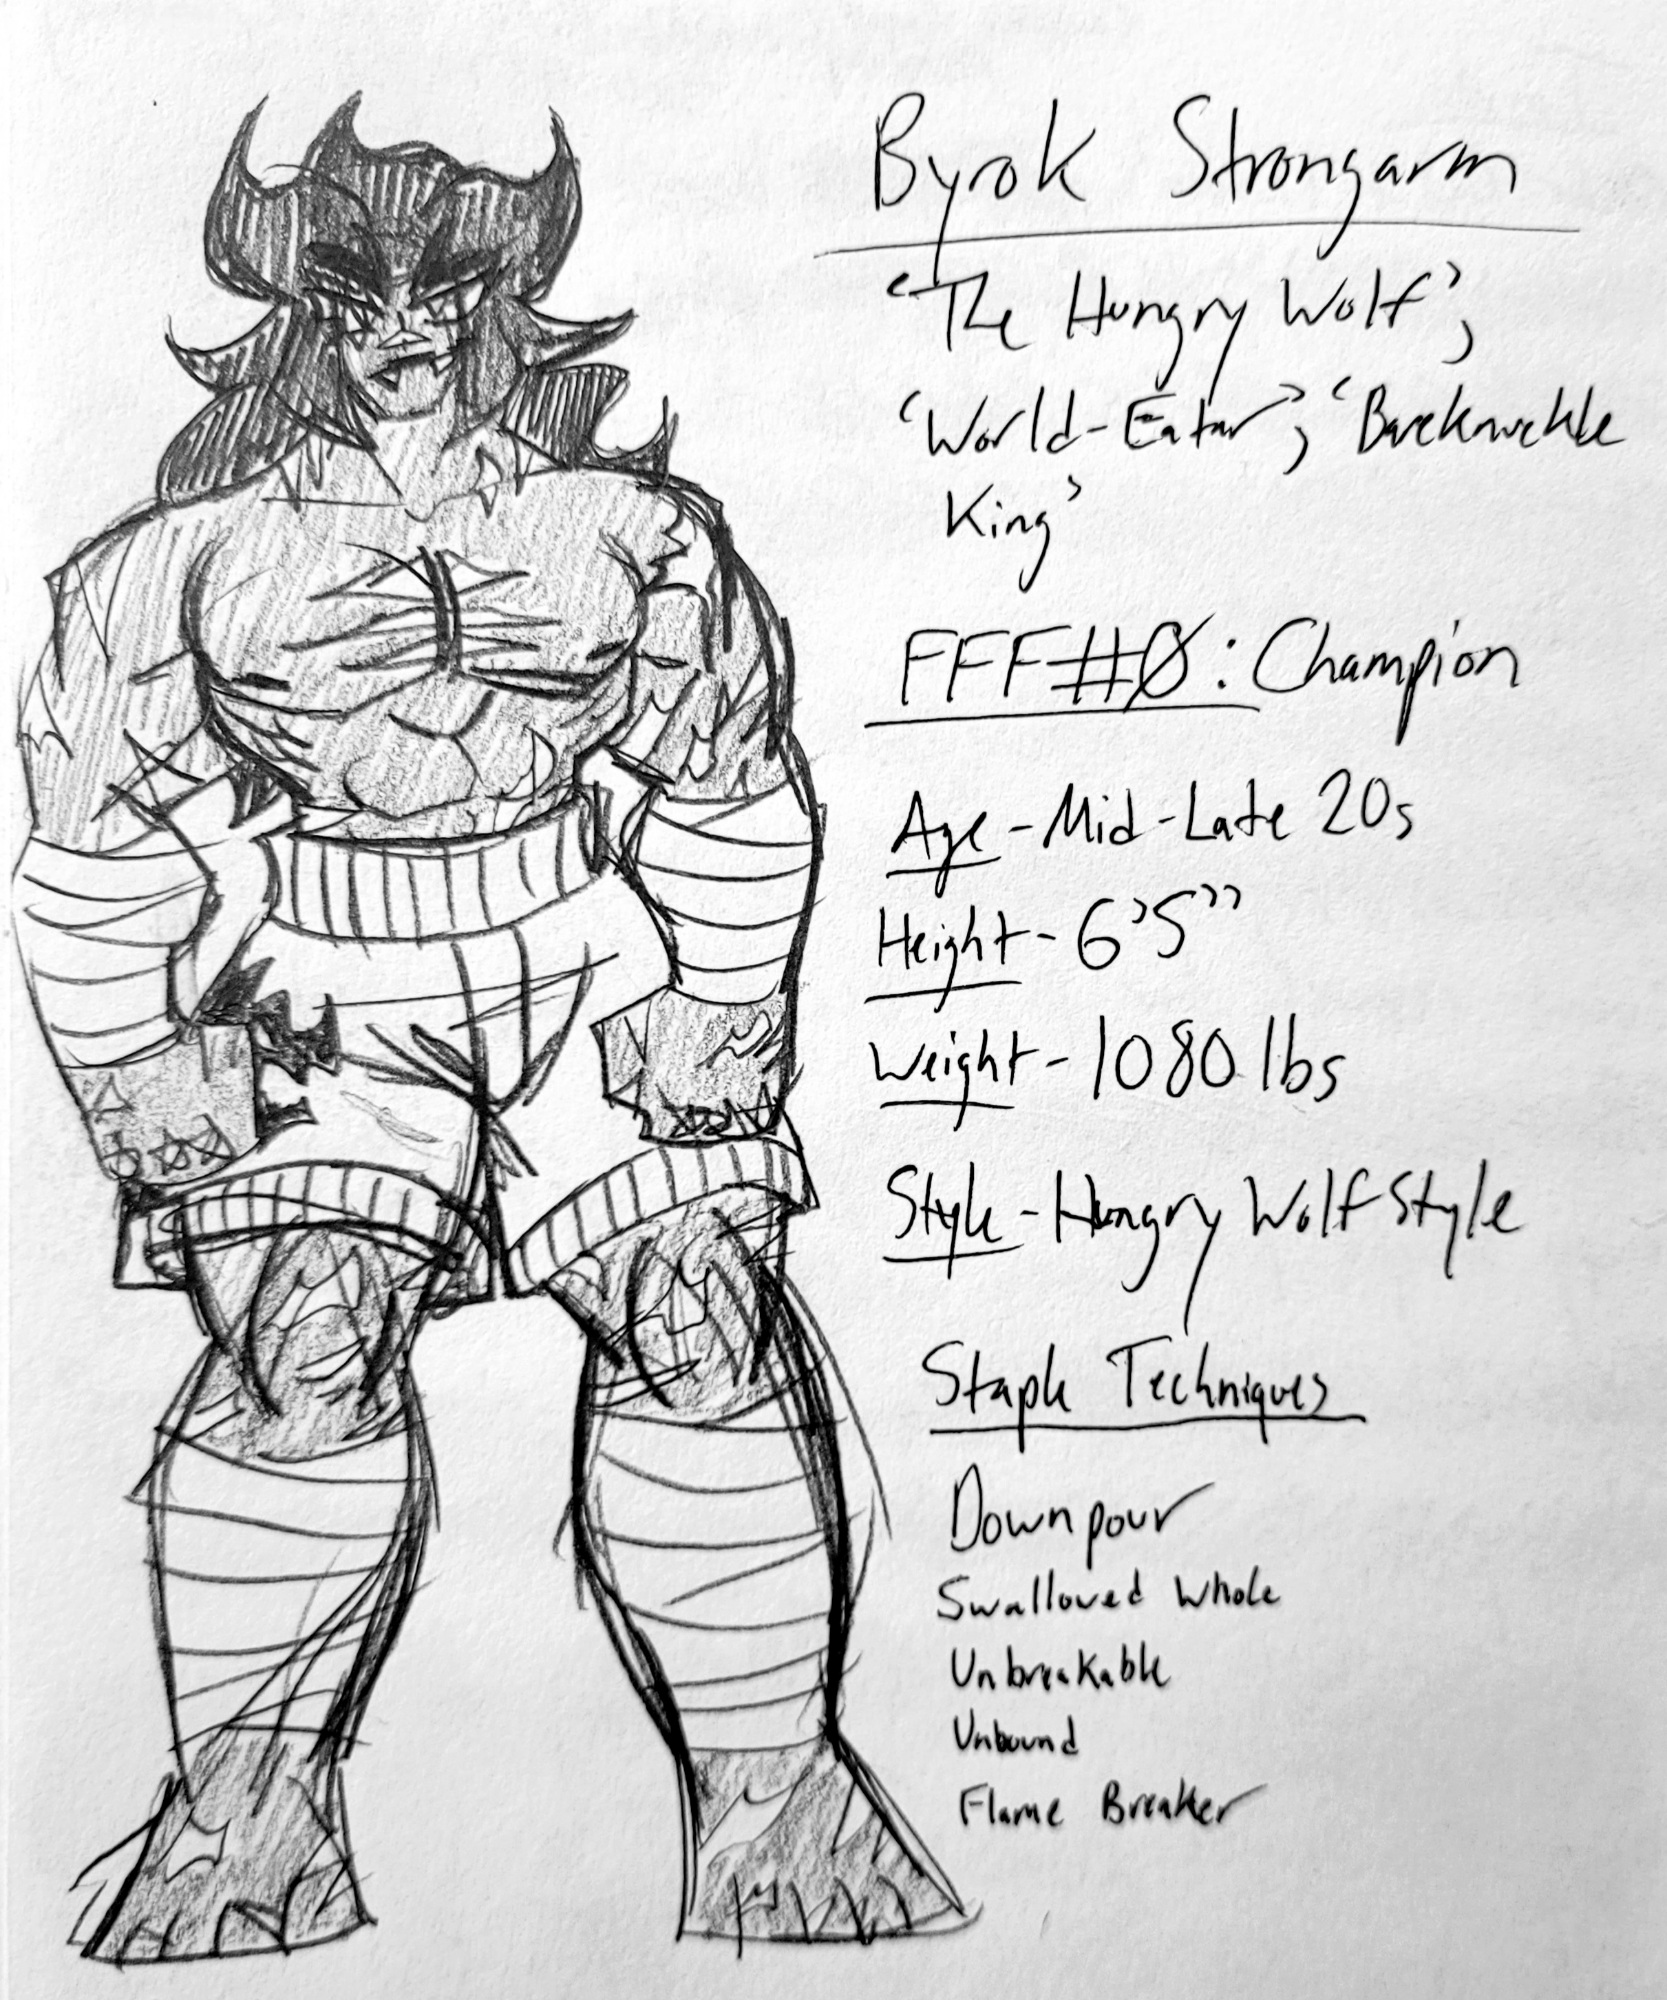 Byrok Strongarm
'The Hungry Wolf',
'World-Eater', 'Bareknuckle
King'
FFF#0: Champion
Age - Mid-Late 20s
Height - 6'5"
Weight - 1080 lbs
Style - Hungry Wolf Style
Staple Techniques
Downpour
Swallowed Whole
Unbreakable
Unbound
Flame Breaker